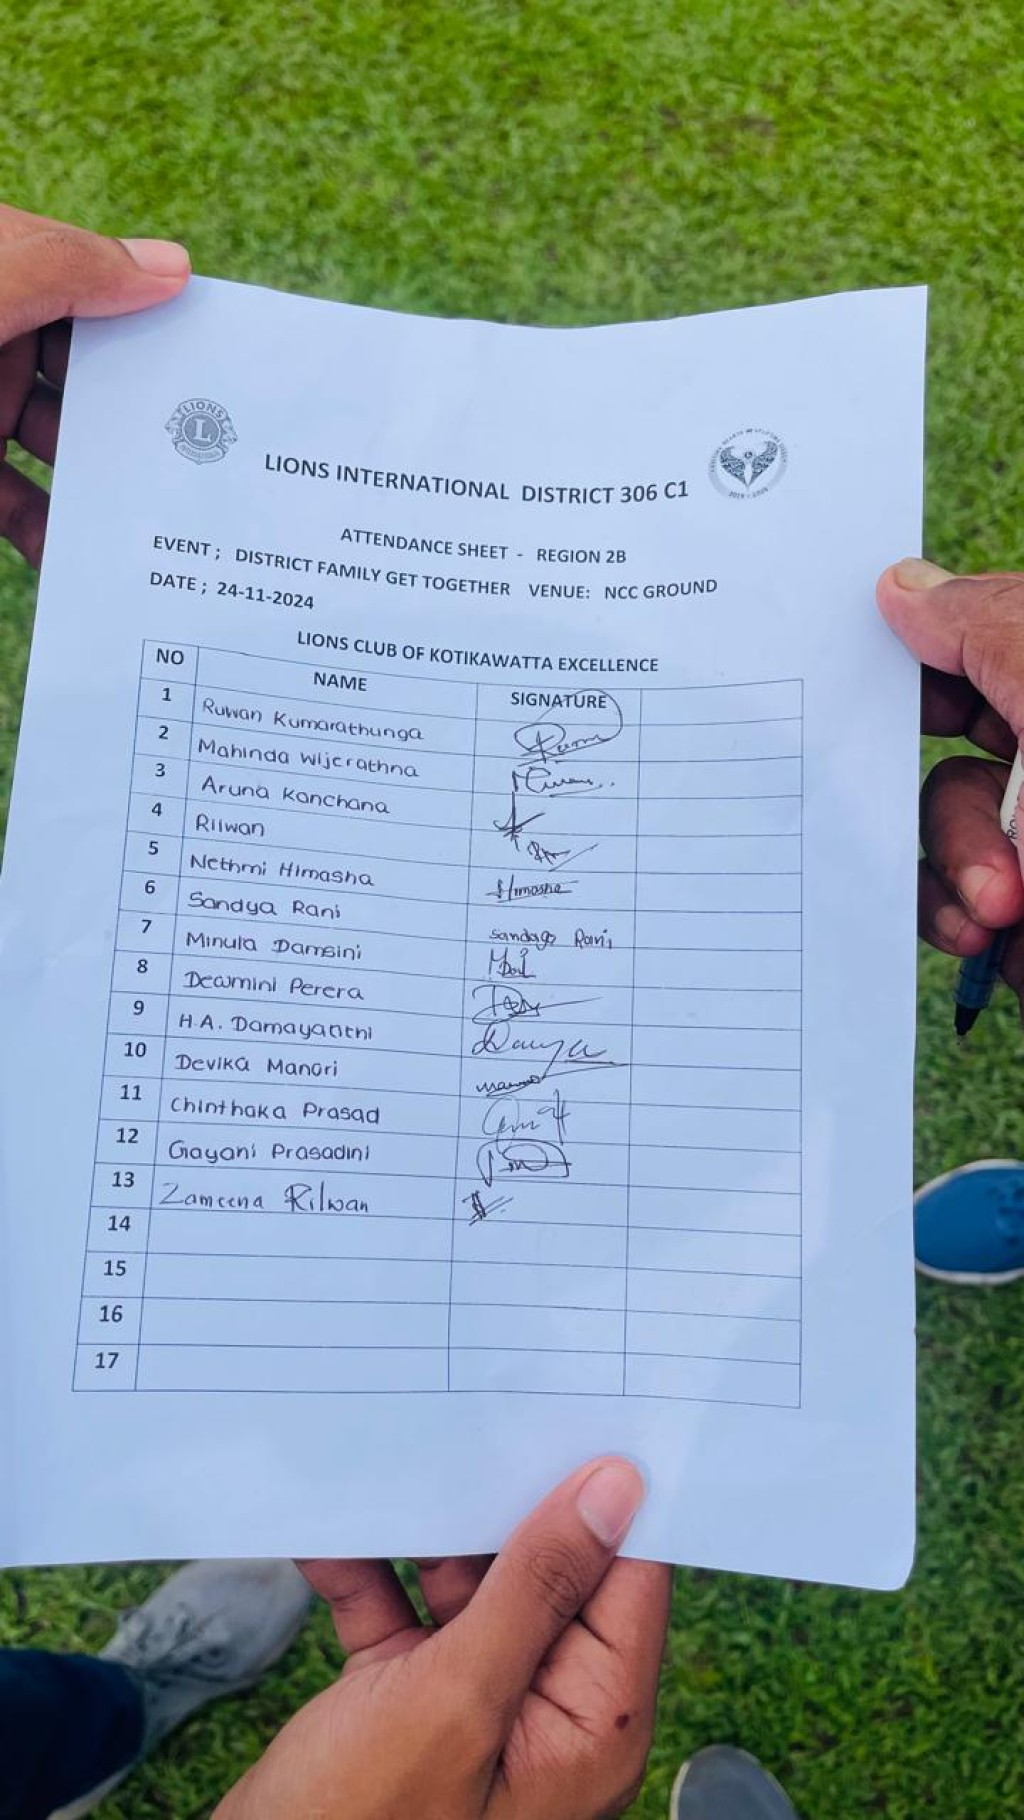 LIONS
L
LIONS INTERNATIONAL DISTRICT 306 C1
ATTENDANCE SHEET - REGION 2B
EVENT ; DISTRICT FAMILY GET TOGETHER VENUE: NCC GROUND
DATE ; 24-11-2024
LIONS CLUB OF KOTIKAWATTA EXCELLENCE
NO NAME SIGNATURE
1 Ruwan Kumarathunga
2 Mahinda Wijerathna
3 Aruna Kanchana
4 Rilwan
5 Nethmi Himasha Himasha
6 Sandya Rani Sandya Rani
7 Minula Damsini
8 Dewmini Perera
9 H.A. Damayanthi
10 Devika Manori
11 Chinthaka Prasad
12 Gayani Prasadini
13 Zameena Rilwan
14
15
16
17